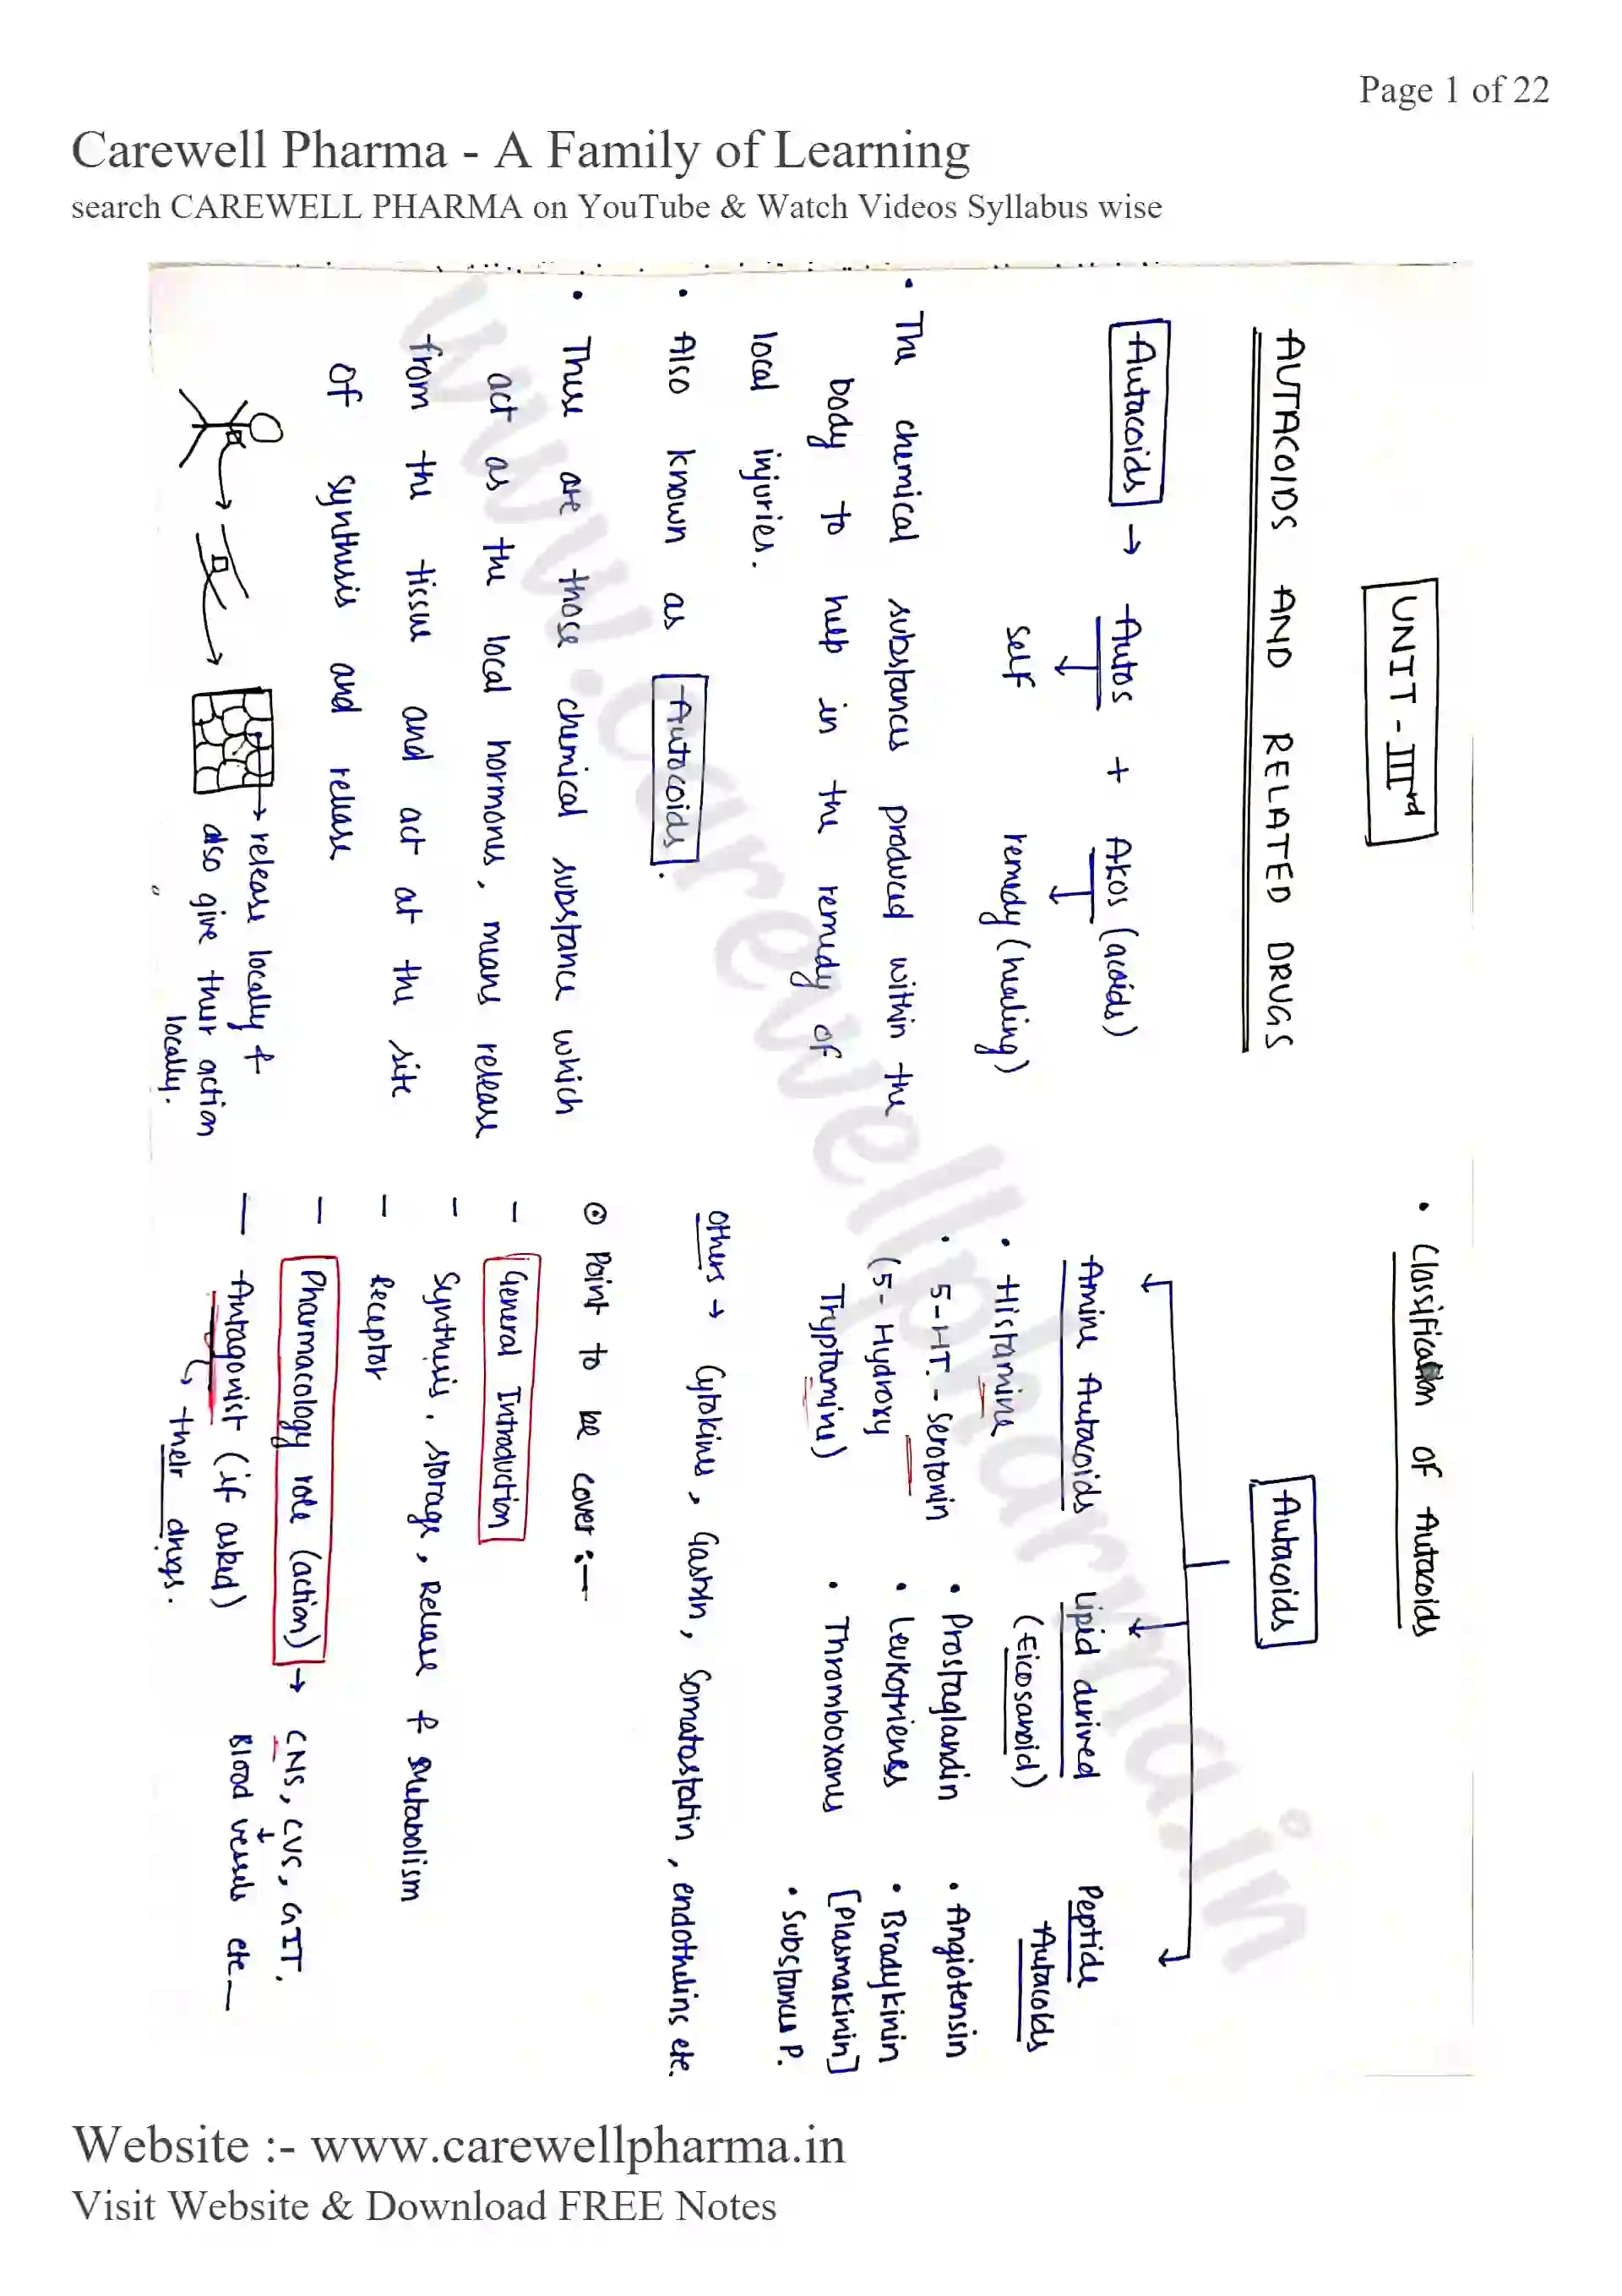 Page 1 of 22
Carewell Pharma - A Family of Learning
search CAREWELL PHARMA on YouTube & Watch Videos Syllabus wise
UNIT - IIIrd
AUTACOIDS AND RELATED DRUGS
Autacoids → Autos + Akos (acoids)
self remedy (healing)
• The chemical substances produced within the
body to help in the remedy of
local injuries.
• Also known as Autocoids.
• These are those chemical substance which
act as the local hormons, means release
from the tissue and act at the site
of synthesis and release
→ release locally &
also give their action
locally.
• Classification of Autacoids
Autacoids
Amine Autacoids
• Histamine
• 5-HT - Serotonin
(5- Hydroxy
Tryptamine)
Lipid derived
(Eicosanoid)
• Prostaglandin
• Leukotrienes
• Thromboxanes
Peptide
Autacoids
• Angiotensin
• Bradykinin
[Plasmakinin]
• Substance P.
Others → Cytokines, Gastrin, Somatostatin, endothelins etc.
⊙ Point to be cover :—
- General Introduction
- Synthesis, storage, Release & Metabolism
- Receptor
- Pharmacology role (action) → CNS, CVS, GIT,
Blood vessels etc —
- Antagonist (if asked)
↳ their drugs.
www.carewellpharma.in
Website :- www.carewellpharma.in
Visit Website & Download FREE Notes